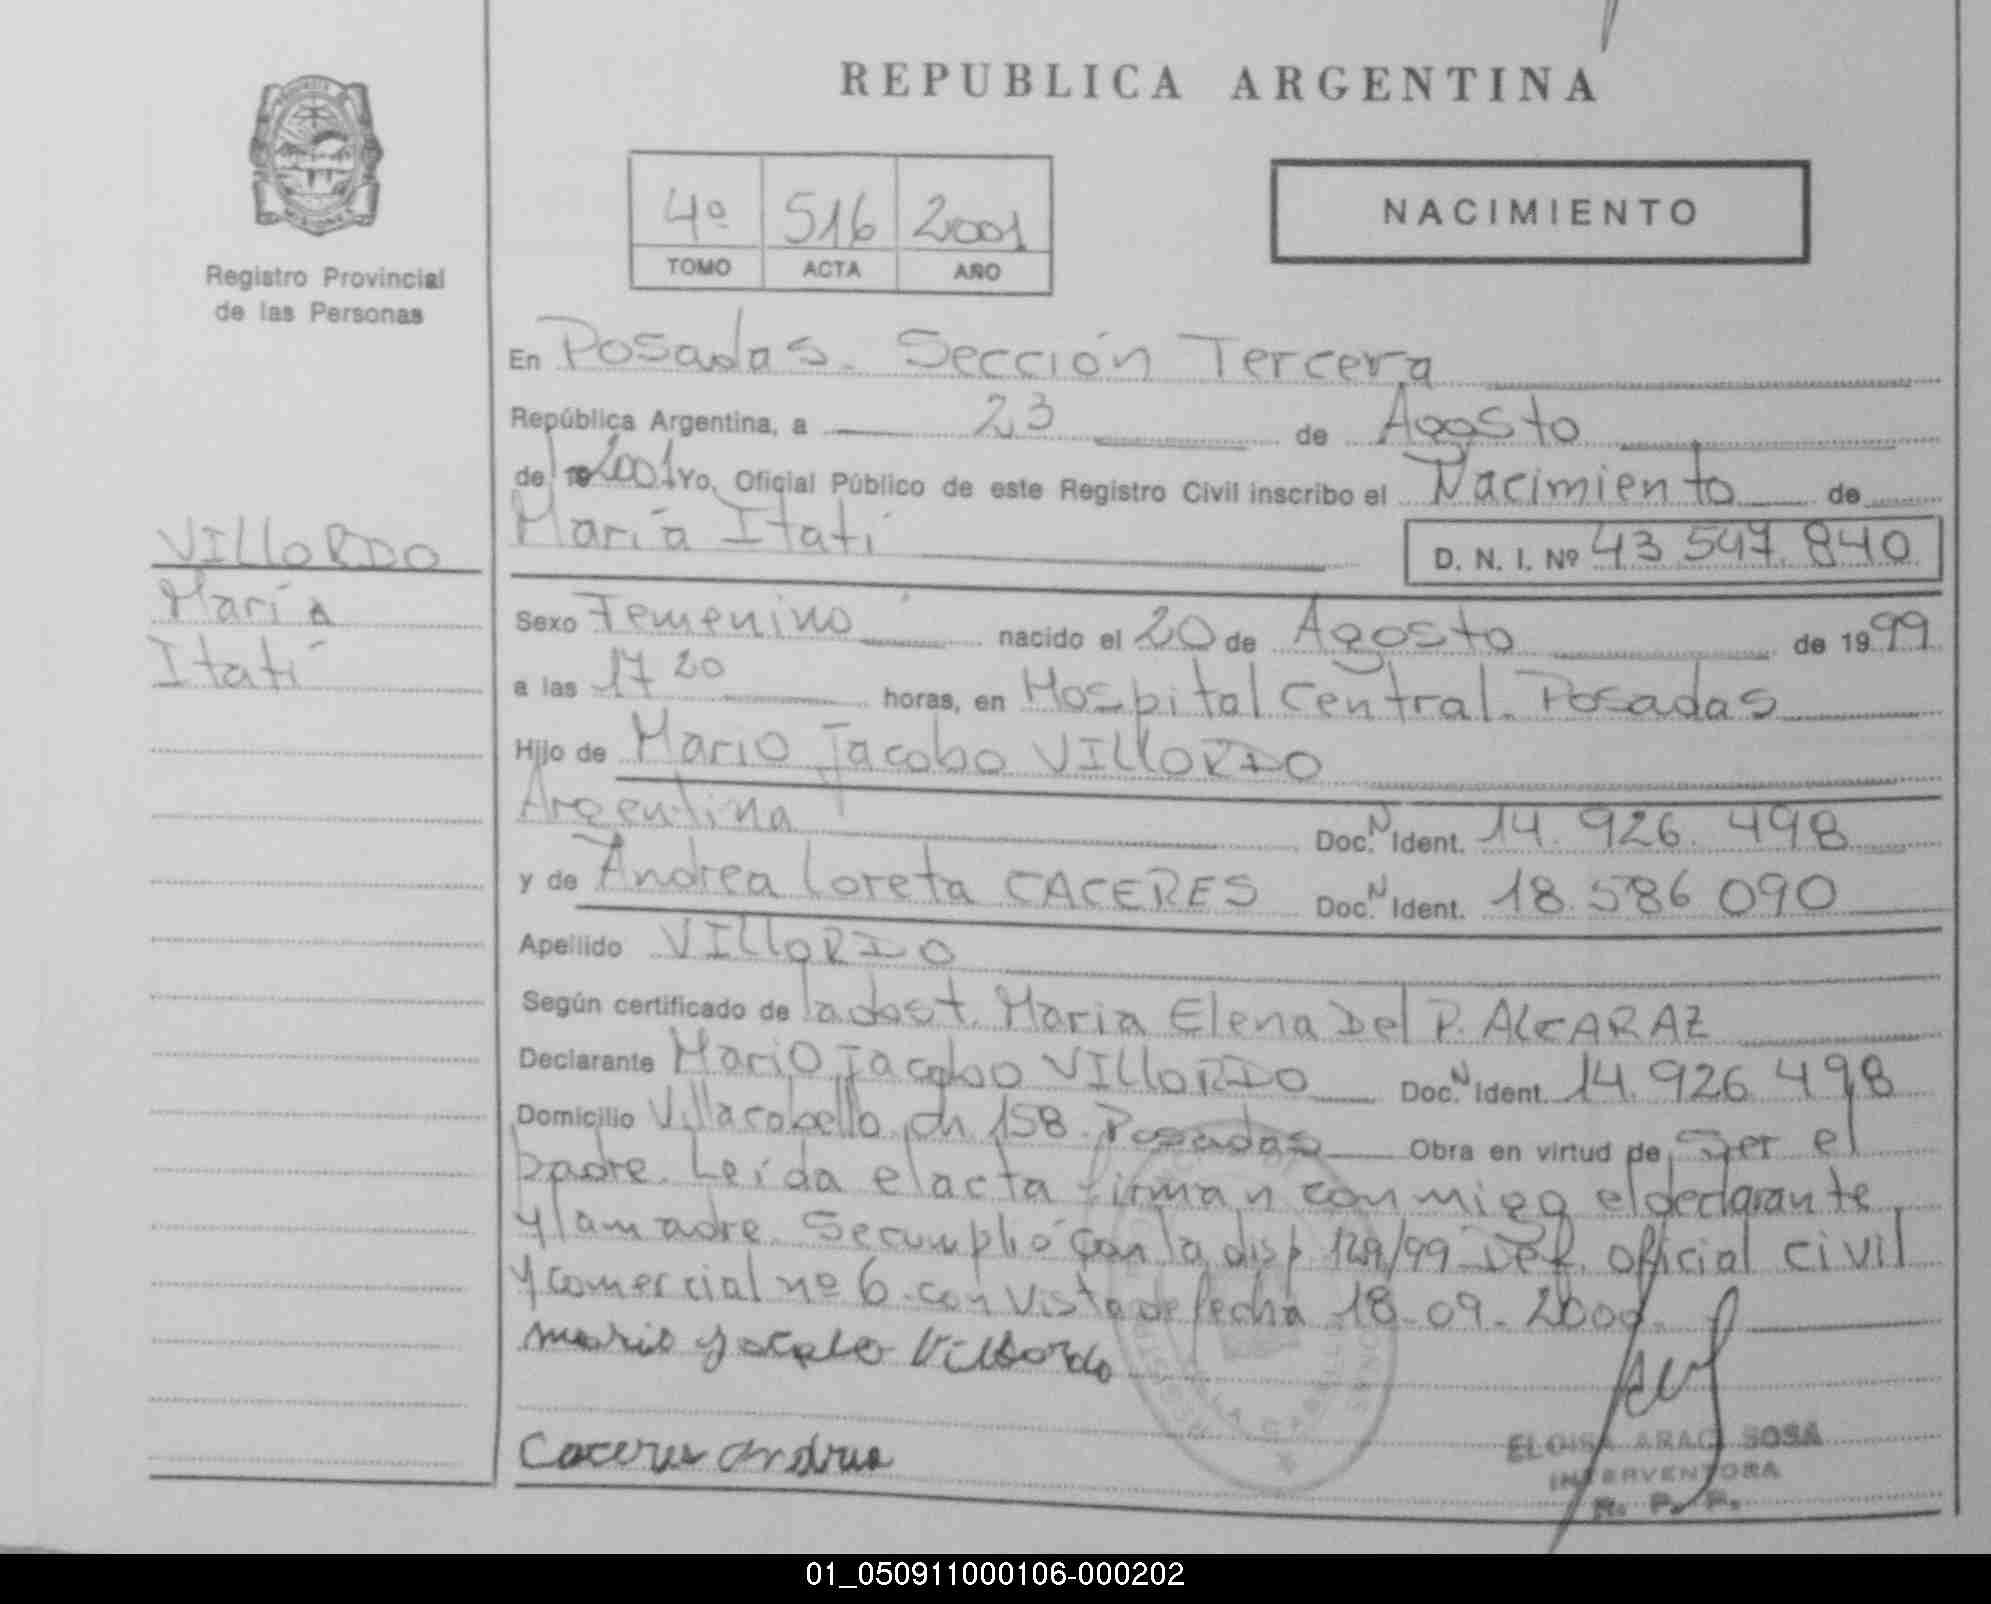 REPUBLICA ARGENTINA
NACIMIENTO
4º 516 2001
TOMO ACTA AÑO
Registro Provincial
de las Personas
VILLORDO
María
Itatí
En Posadas. Sección Tercera
República Argentina, a 23 de Agosto
de 19 2001 Yo, Oficial Público de este Registro Civil inscribo el Nacimiento de
María Itatí
D. N. I. Nº 43.547.840
Sexo Femenino nacido el 20 de Agosto de 1999
a las 17 20 horas, en Hospital Central. Posadas
Hijo de Mario Jacobo VILLORDO
Argentina Doc. N Ident. 14.926.498
y de Andrea Loreta CACERES Doc. N Ident. 18.586.090
Apellido VILLORDO
Según certificado de la obst. Maria Elena Del P. ALCARAZ
Declarante Mario Jacobo VILLORDO Doc. N Ident. 14.926.498
Domicilio Villacabello ch 158. Posadas Obra en virtud de Ser el
padre. Leída el acta firman conmigo el declarante
y la madre. Se cumplió con la disp 129/99 Def. oficial civil
y comercial nº 6. con vista de fecha 18-09-2000.
Mario Jacobo Villordo
Caceres Andrea
ELOISA ARACI SOSA
INTERVENTORA
R. P. P.
01_050911000106-000202